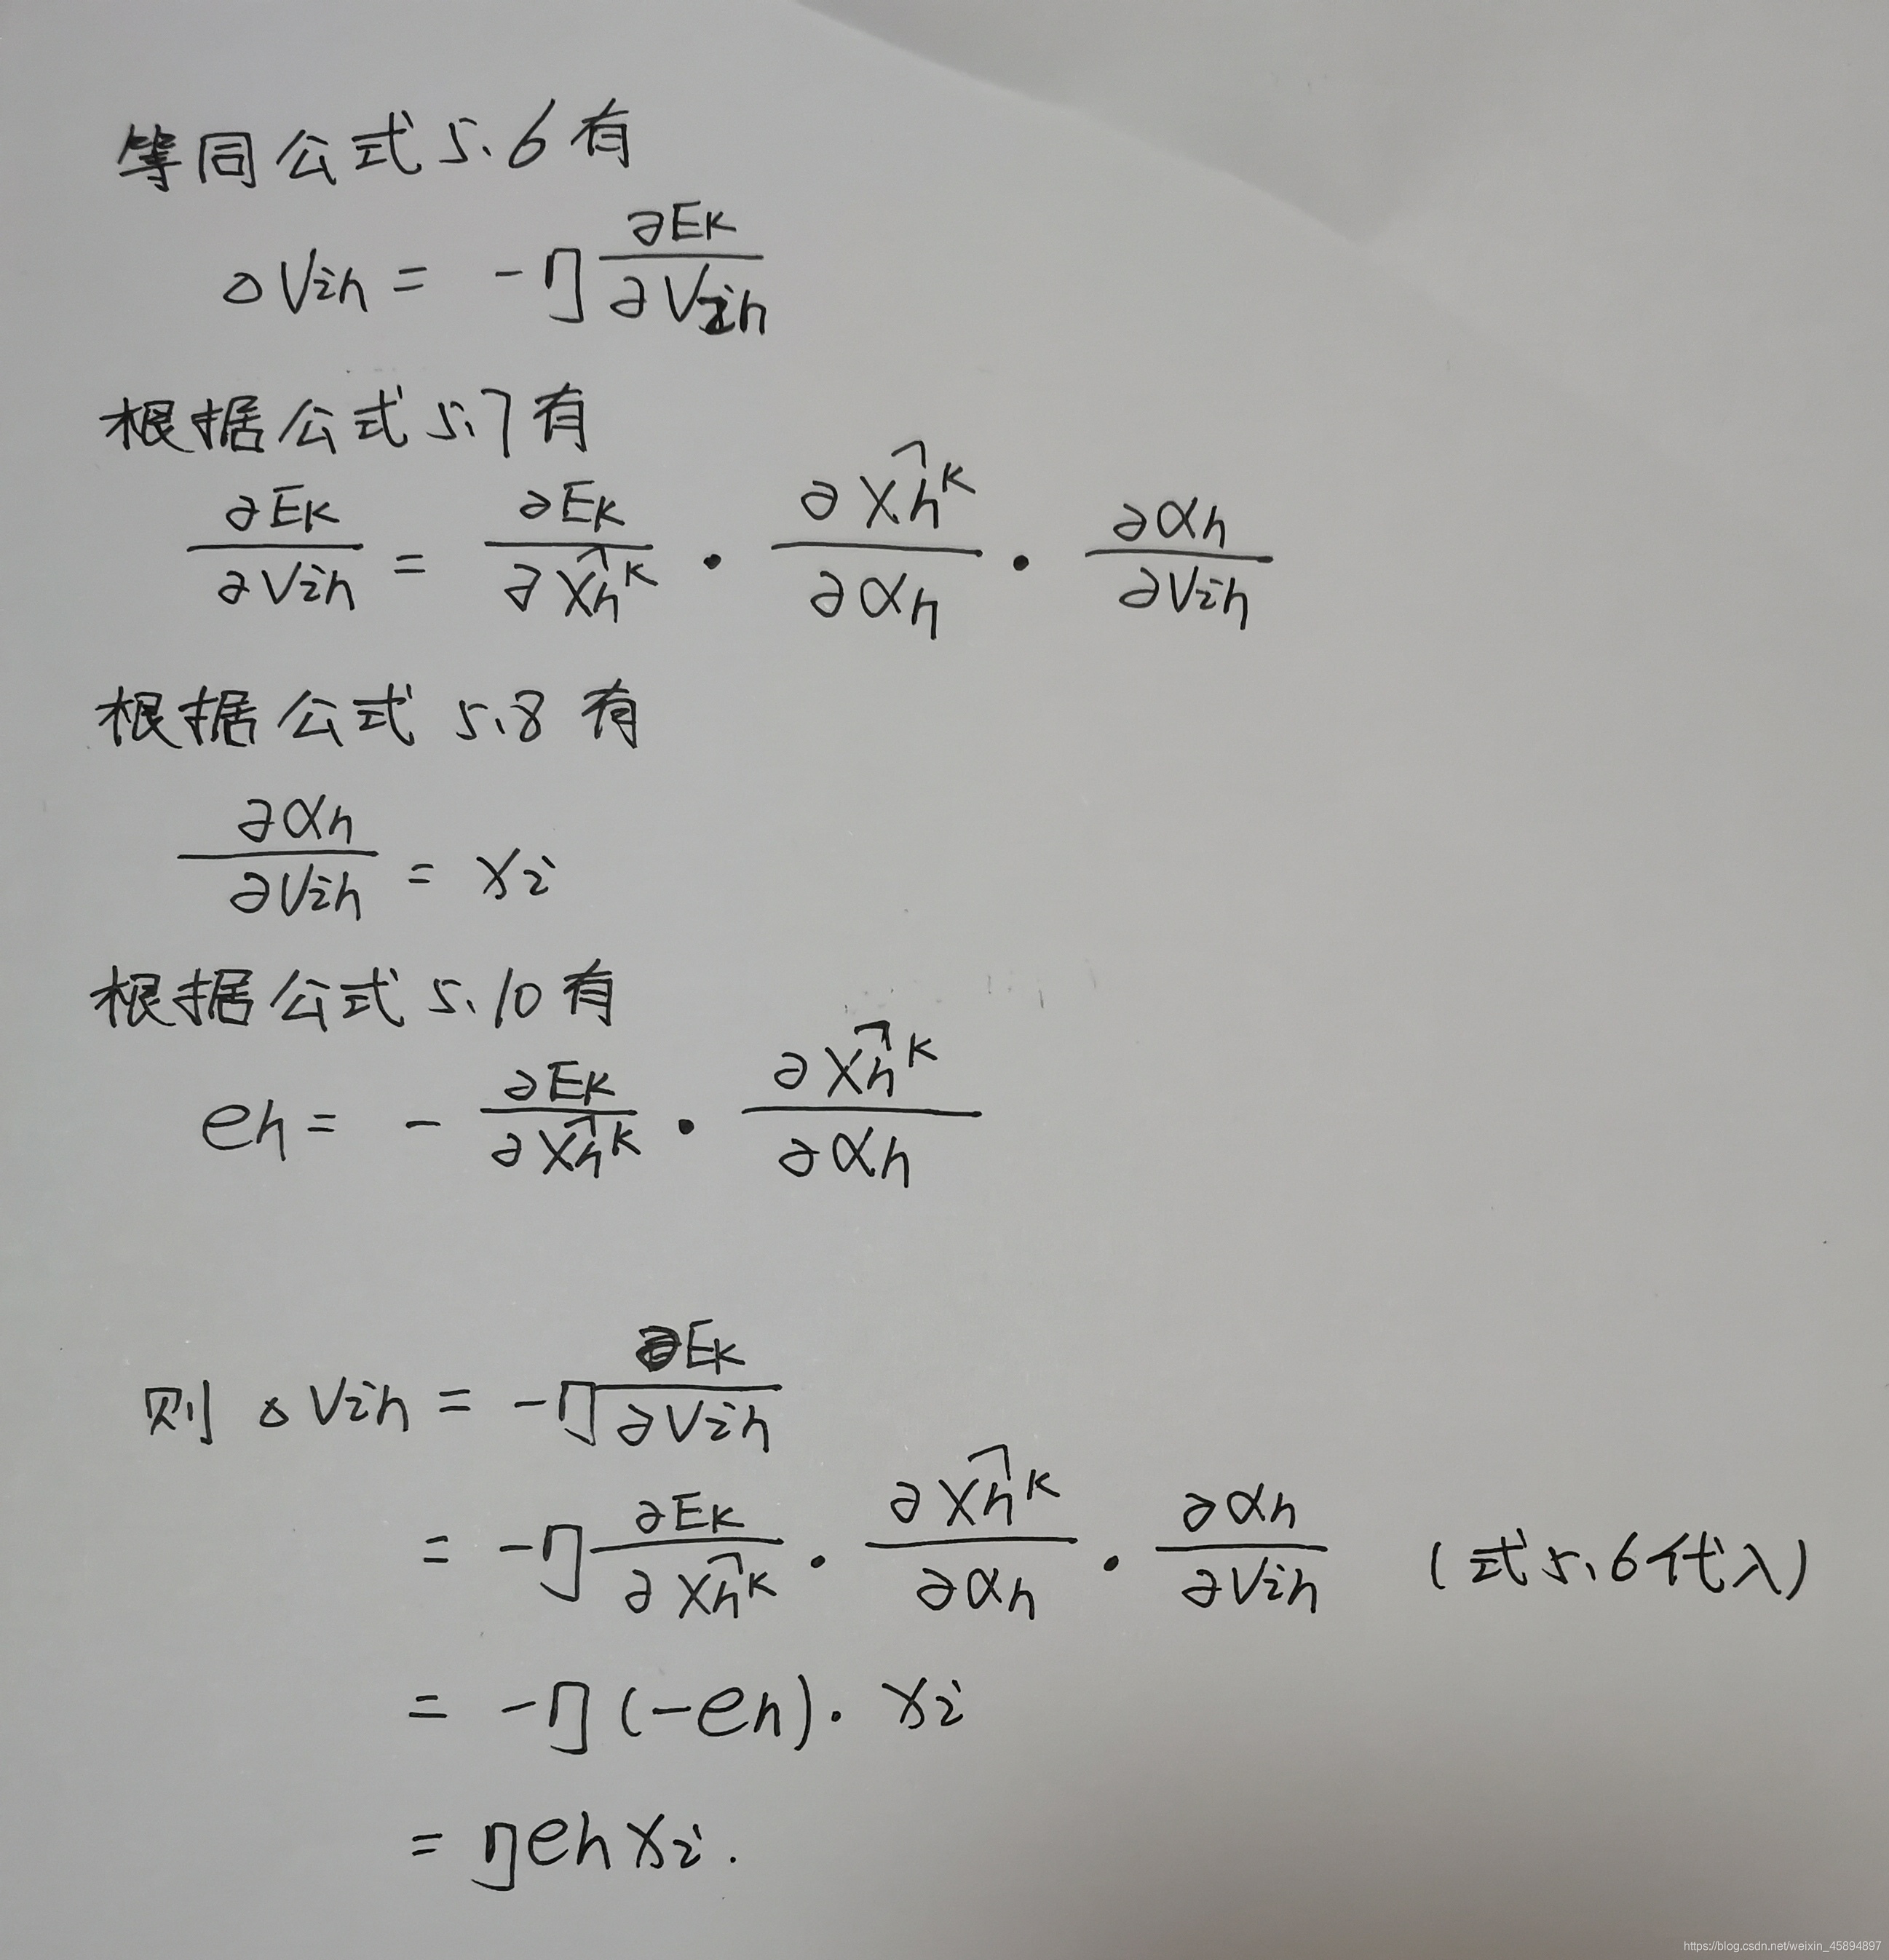 等同公式5.6有
△Vih = -η ∂Ek/∂Vih
根据公式5.7有
∂Ek/∂Vih = ∂Ek/∂X̂h^k · ∂X̂h^k/∂αh · ∂αh/∂Vih
根据公式5.8有
∂αh/∂Vih = xi
根据公式5.10有
eh = - ∂Ek/∂X̂h^k · ∂X̂h^k/∂αh
则 △Vih = -η ∂Ek/∂Vih
= -η ∂Ek/∂X̂h^k · ∂X̂h^k/∂αh · ∂αh/∂Vih (式5.6代入)
= -η(-eh)· xi
= ηehxi.
https://blog.csdn.net/weixin_45894897